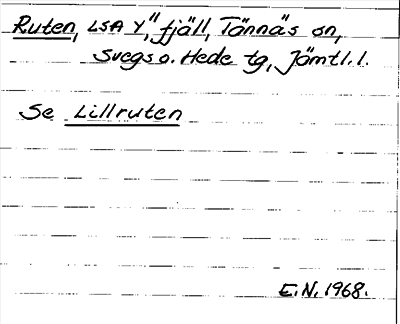 Ruten, LSA Y," fjäll, Tännäs sn,
Svegs o. Hede tg, Jämtl. l.
Se Lillruten
E.N. 1968.